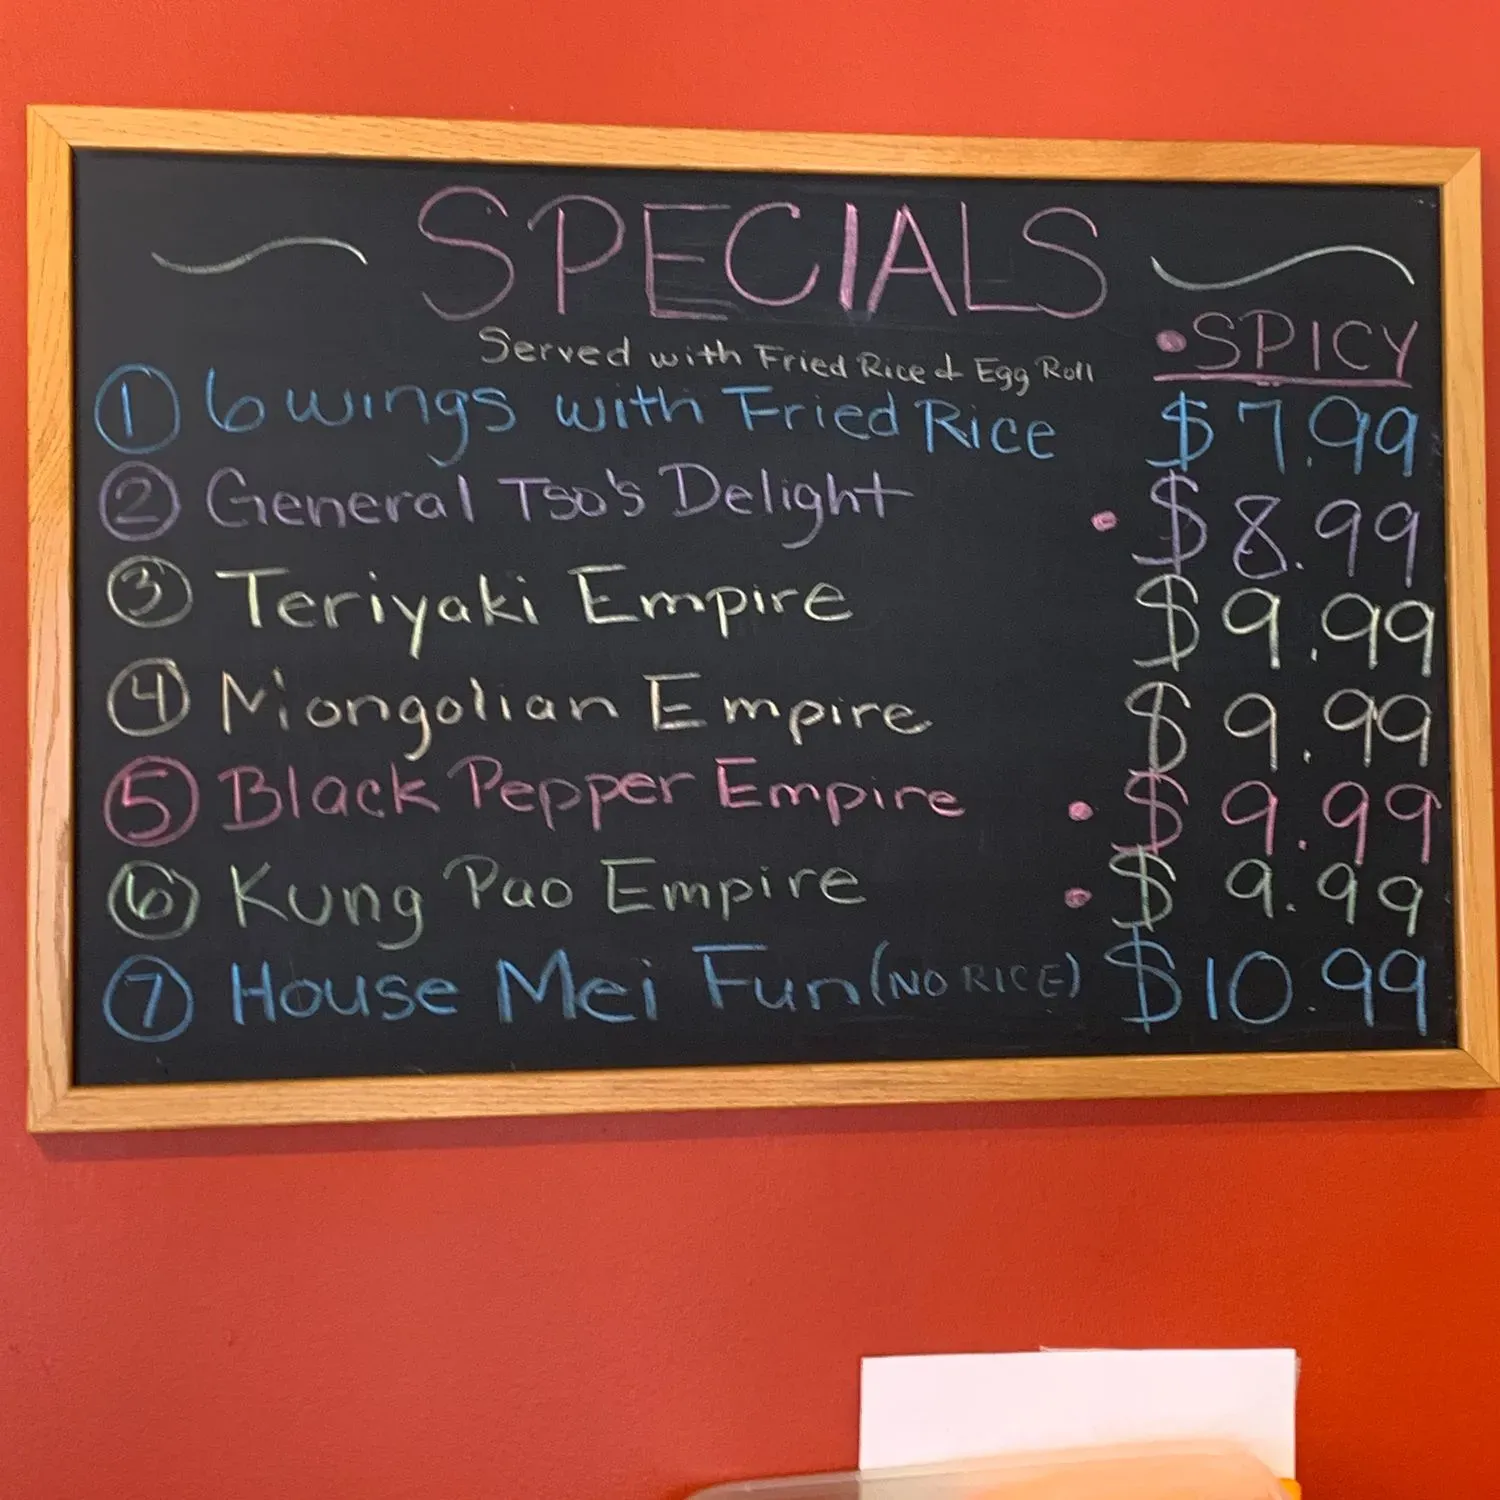 SPECIALS
Served with Fried Rice & Egg Roll
• SPICY
① 6 wings with Fried Rice $7.99
② General Tso's Delight • $8.99
③ Teriyaki Empire $9.99
④ Mongolian Empire $9.99
⑤ Black Pepper Empire • $9.99
⑥ Kung Pao Empire • $9.99
⑦ House Mei Fun (NO RICE) $10.99